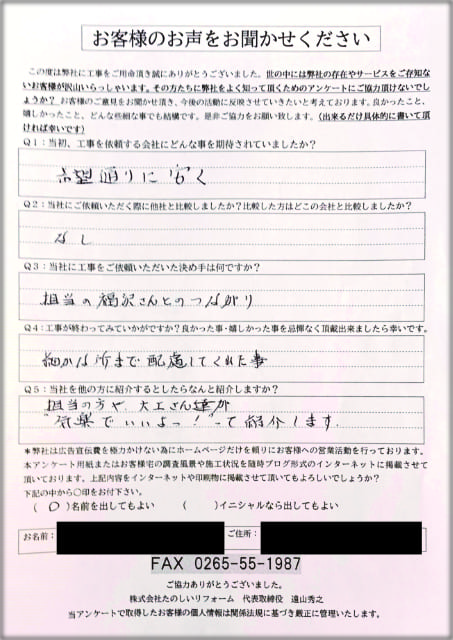 お客様のお声をお聞かせください
この度は弊社に工事をご用命頂き誠にありがとうございました。世の中には弊社の存在やサービスをご存知ないお客様が沢山いらっしゃいます。その方たちに弊社をよく知って頂くためのアンケートにご協力頂けないでしょうか？ お客様のご意見をお聞かせ頂き、今後の活動に反映させていきたいと考えております。良かったこと、嬉しかったこと、どんな些細な事でも結構です。是非ご協力をお願い致します。（出来るだけ具体的に書いて頂ければ幸いです）
Q1：当初、工事を依頼する会社にどんな事を期待されていましたか？
希望通りに安く
Q2：当社にご依頼いただく際に他社と比較しましたか？比較した方はどこの会社と比較しましたか？
なし
Q3：当社に工事をご依頼いただいた決め手は何ですか？
担当の福沢さんとのつながり
Q4：工事が終わってみていかがですか？良かった事・嬉しかった事を忌憚なく頂戴出来ましたら幸いです。
細かな所まで配慮してくれた事
Q5：当社を他の方に紹介するとしたらなんと紹介しますか？
担当の方や、大工さん達が
"気楽でいいよっ！"って紹介します。
＊弊社は広告宣伝費を極力かけない為にホームページだけを頼りにお客様への営業活動を行っております。
本アンケート用紙またはお客様宅の調査風景や施工状況を随時ブログ形式のインターネットに掲載させて頂いております。上記内容をインターネットや印刷物に掲載させて頂いてもよろしいでしょうか？
下記の中から〇印をお付下さい。
（ ○ ）名前を出してもよい （ ）イニシャルなら出してもよい
お名前： ご住所：
FAX 0265-55-1987
ご協力ありがとうございました。
株式会社たのしいリフォーム 代表取締役 遠山秀之
当アンケートで取得したお客様の個人情報は関係法規に基づき厳正に管理いたします。